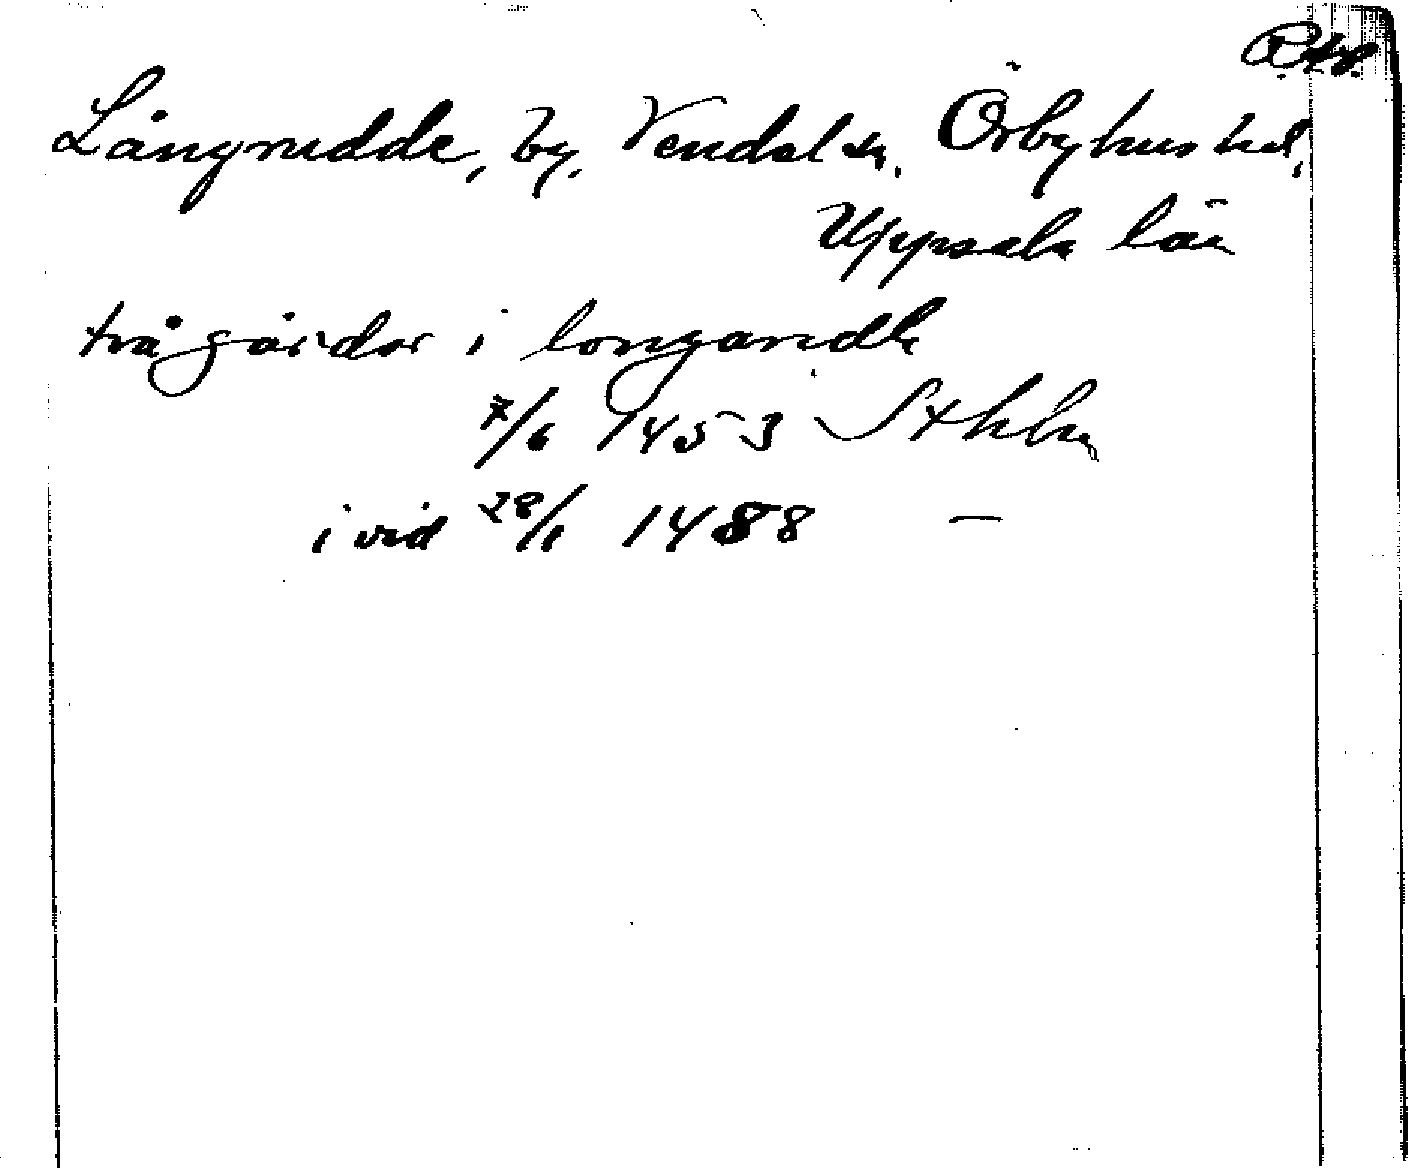 Långrudde, by, Vendels sn, Örbyhus hd,
Uppsala län
två gårdar i longarudh
7/6 1453 Sthlm
i vid 28/1 1488 —